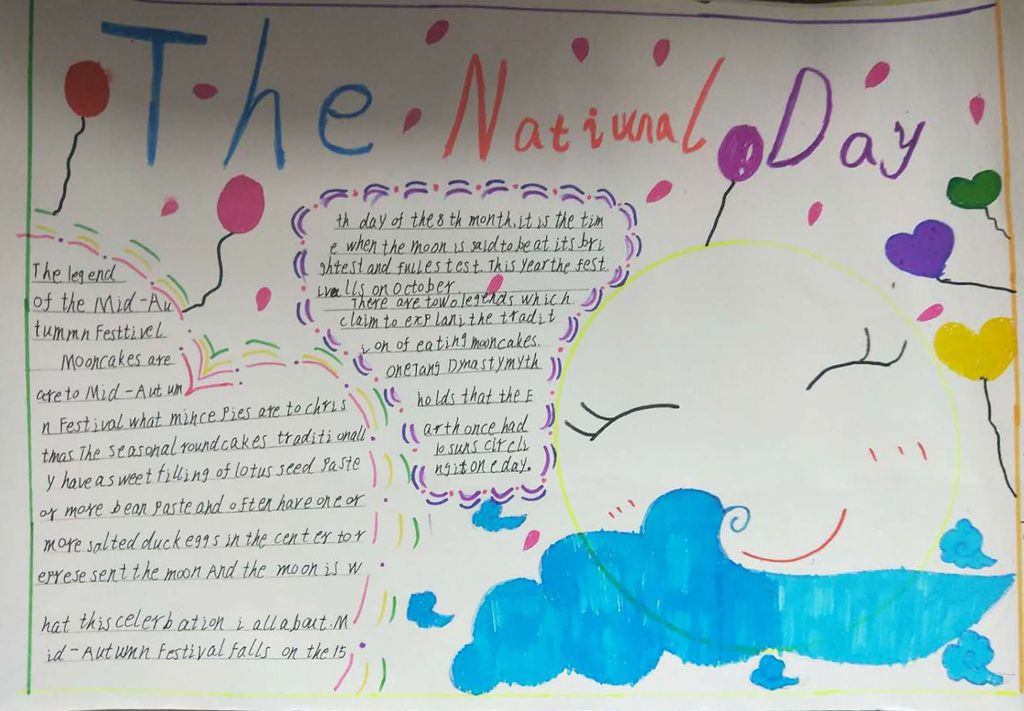 The Natiunal Day
The legend
of the Mid-Au
tummn Festtivel
Mooncakes are
are to Mid-Autum
n Festival what mince Pies are to chris
tmas The seasonal roundcakes traditionall
y have a sweet filling of lotus seed Paste
or more bean Paste and often have one or
more salted duck eggs in the center to r
eprese sent the moon And the moon is w
hat this celerbation i all about. M
id-Autumn Festival falls on the 15
th day of the 8 th month. it is the tim
e when the moon is said to be at its bri
ghtest and fullestest. This year the fest
on October
There are towo legends which
claim to explani the tradit
ion of eating mooncakes.
one Tang Dynasty myth
holds that the E
arth once had
10 suns circli
ng it one day.